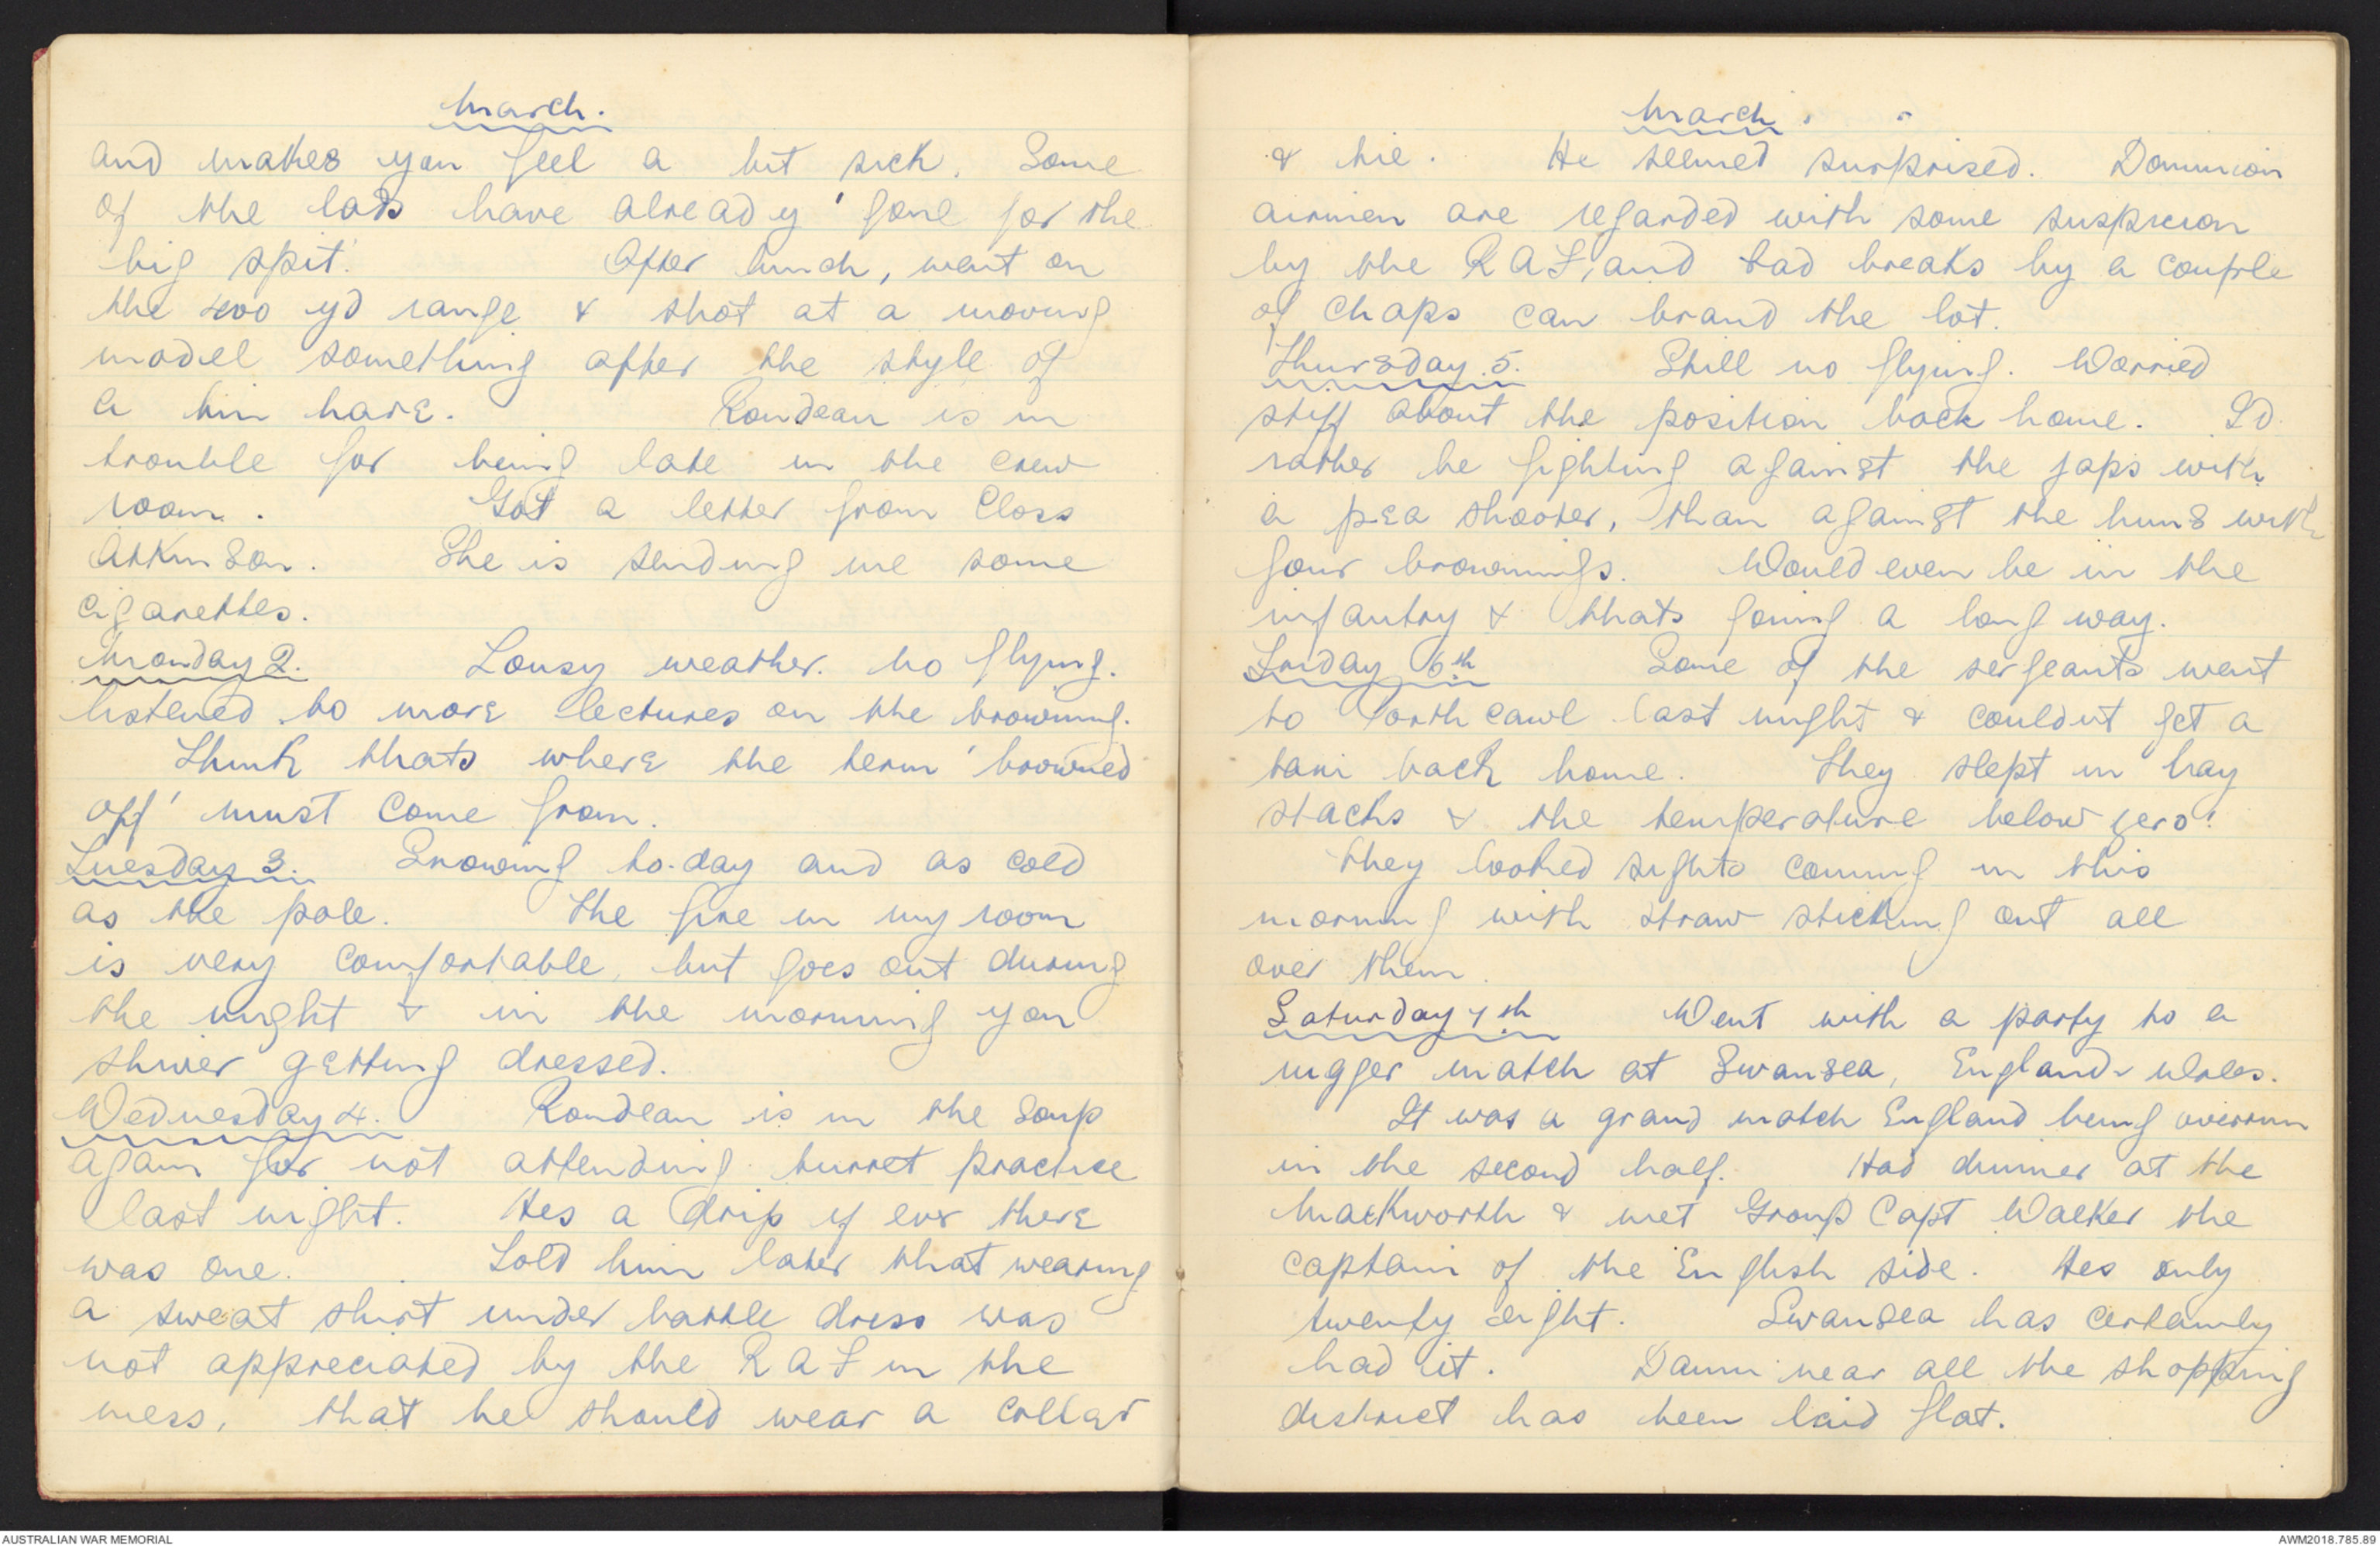 March.
and makes you feel a bit sick. Some
of the lads have already 'gone for the
big spit'. After lunch, went on
the 400 yd range & shot at a moving
model something after the style of
a tin hare. Rondeau is in
trouble for being late in the crew
room. Got a letter from Closs
Atkinson. She is sending me some
cigarettes.
Monday 2. Lousy weather. No flying.
listened to more lectures on the browning.
Think thats where the term 'browned
off' must come from.
Tuesday 3. Snowing to-day and as cold
as the pole. The fire in my room
is very comfortable, but goes out during
the night & in the morning you
shiver getting dressed.
Wednesday 4. Rondeau is in the soup
again for not attending turret practice
last night. Hes a drip if ever there
was one. Told him later that wearing
a sweat shirt under battle dress was
not appreciated by the RAF in the
mess, that he should wear a collar
March.
& tie. He seemed surprised. Dominion
airmen are regarded with some suspicion
by the RAF, and bad breaks by a couple
of chaps can brand the lot.
Thursday 5. Still no flying. Worried
stiff about the position back home. I'd
rather be fighting against the japs with
a pea shooter, than against the huns with
four brownings. Would even be in the
infantry & thats going a long way.
Friday 6th Some of the sergeants went
to Porthcawl last night & couldnt get a
taxi back home. They slept in hay
stacks & the temperature below zero!
They looked sights coming in this
morning with straw sticking out all
over them.
Saturday 7th Went with a party to a
rugger match at Swansea, England v Wales.
It was a grand match England being overrun
in the second half. Had dinner at the
Mackworth & met Group Capt Walker the
captain of the English side. Hes only
twenty eight. Swansea has certainly
had it. Damn near all the shopping
district has been laid flat.
AUSTRALIAN WAR MEMORIAL
AWM2018.785.89